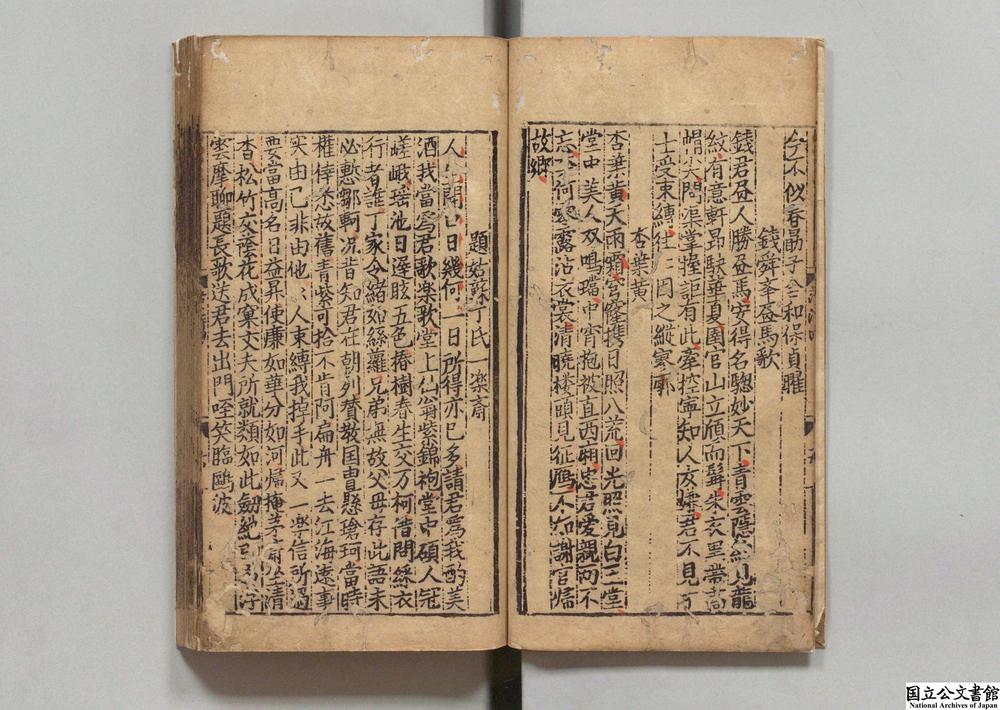 今不似香勗子合和保貞曜
錢舜峯畫馬歌
錢君昼人勝昼馬安得名驄妙天下青雲隱見龍
紋有意軒昂駃華夏圉官山立頎而髯朱衣黒帶
帽尖問渠掌握詎有此牽控寧知人友
士受束縛仕一因之縱寥廓
杏葉黄
杏葉黄天雨霜宫縧携日照八荒回光照見白玉堂
堂中美人双鳴璫中宵抱被直西廂忠君愛親两不
忘何零露沾衣裳清曉楼頭見征鴈不如謝官歸
故郷
題姑蘇丁氏一楽斎
人生開口日幾何一日所得亦已多請君爲我酌美
酒我當爲君歌楽歌堂上仙翁紫錦袍堂中碩人冠
嵯峨瑶池日遅眩五色椿樹春生交万柯借問綵衣
行者誰丁家令緒如絲蘿兄弟無故父母存此語未
必慙鄒軻况昔知君在朝列賛教囯胄懸瑲珂當時
權倖忝故舊青紫可拾不肯阿扁舟一去江海遠事
実由己非由他人束縛我掉手此又一樂信所過
要當高名日益昇使廉如華分如河歸掩茅齋坐清
杳松竹交蔭花成窠丈夫所就類如此劔
雲摩聊題長歌送君去出門咥笑臨鷗波
国立公文書館
National Archives of Japan